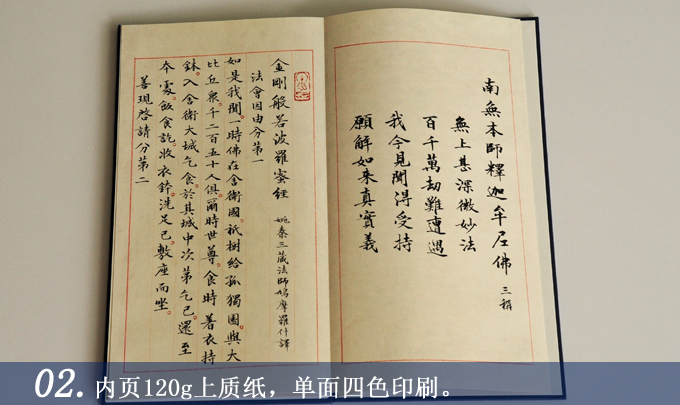 南無本師釋迦牟尼佛 三稱
無上甚深微妙法
百千萬劫難遭遇
我今見聞得受持
願解如来真實義
金剛般若波羅蜜經 姚秦三藏法師鳩摩羅什譯
法會因由分第一
如是我聞。一時佛在舍衛國。祇樹給孤獨園。與大
比丘衆。千二百五十人俱。爾時世尊。食時著衣持
鉢。入舍衛大城乞食。於其城中次第乞已。還至
本處。飯食訖。收衣鉢。洗足已。敷座而坐。
善現啓請分第二
02.内页120g上质纸，单面四色印刷。